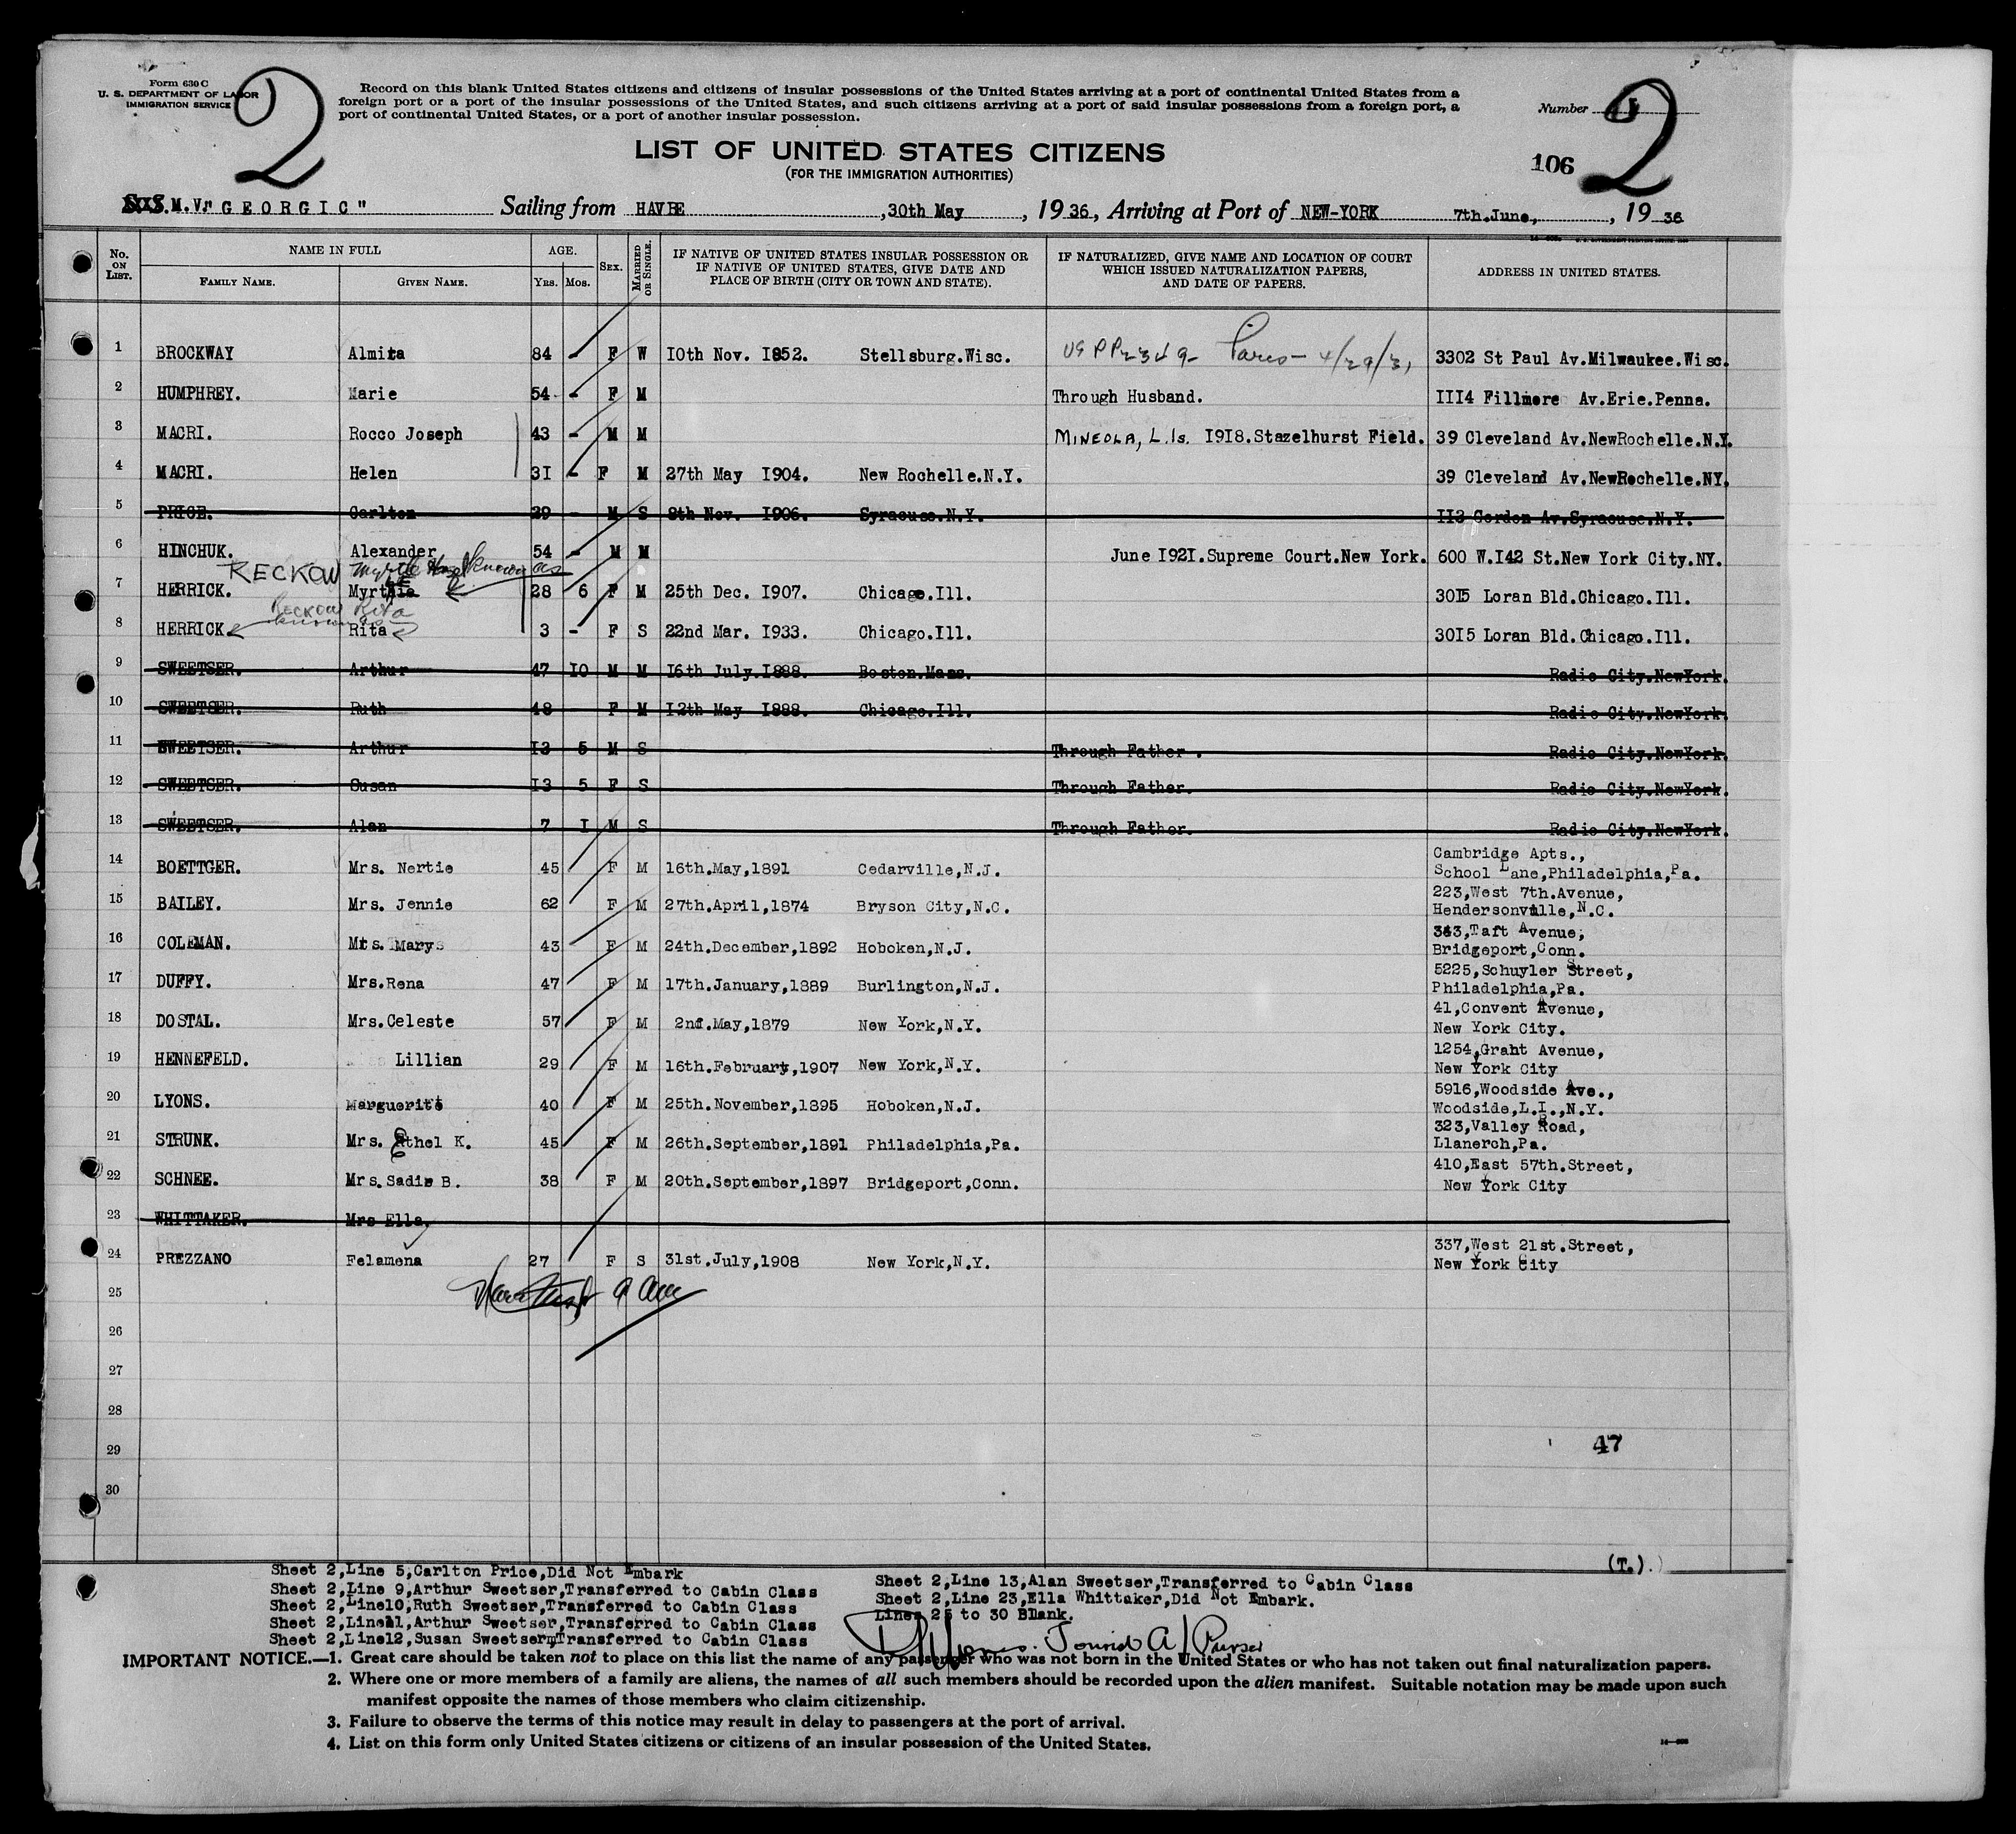 Form 630 C
U. S. DEPARTMENT OF LABOR
IMMIGRATION SERVICE
2
Record on this blank United States citizens and citizens of insular possessions of the United States arriving at a port of continental United States from a
foreign port or a port of the insular possessions of the United States, and such citizens arriving at a port of said insular possessions from a foreign port, a
port of continental United States, or a port of another insular possession.
Number
2
LIST OF UNITED STATES CITIZENS
(FOR THE IMMIGRATION AUTHORITIES)
106
S.S. M.V." G E O R G I C " Sailing from HAVRE, 30th May, 1936, Arriving at Port of NEW-YORK 7th.June., 1936
No. ON LIST. NAME IN FULL FAMILY NAME. GIVEN NAME. AGE. YRS. MOS. SEX. MARRIED OR SINGLE. IF NATIVE OF UNITED STATES INSULAR POSSESSION OR IF NATIVE OF UNITED STATES, GIVE DATE AND PLACE OF BIRTH (CITY OR TOWN AND STATE). IF NATURALIZED, GIVE NAME AND LOCATION OF COURT WHICH ISSUED NATURALIZATION PAPERS, AND DATE OF PAPERS. ADDRESS IN UNITED STATES.
1 BROCKWAY Almita 84 - F W I0th Nov. I852. Stellsburg.Wisc. Paris- 4/29/31 3302 St Paul Av.Milwaukee.Wisc.
2 HUMPHREY. Marie 54 - F M Through Husband. III4 Fillmore Av.Erie.Penna.
3 MACRI. Rocco Joseph 43 - M M MINEOLA, L.Is. I9I8.Stazelhurst Field. 39 Cleveland Av.NewRochelle.N.Y.
4 MACRI. Helen 3I - F M 27th May I904. New Rochelle.N.Y. 39 Cleveland Av.NewRochelle.NY.
5 PRICE. Carlton 29 - M S 8th Nov. I906. Syracuse.N.Y. II3 Gordon Av.Syracuse.N.Y.
6 HINCHUK. Alexander 54 - M M June I92I.Supreme Court.New York. 600 W.I42 St.New York City.NY.
RECKOW Myrtle known as
7 HERRICK. Myrtle 28 6 F M 25th Dec. I907. Chicago.Ill. 30I5 Loran Bld.Chicago.Ill.
RECKOW Rita
known as
8 HERRICK. Rita 3 - F S 22nd Mar. I933. Chicago.Ill. 30I5 Loran Bld.Chicago.Ill.
9 SWEETSER. Arthur 47 I0 M M I6th July.I888. Boston.Mass. Radio City.NewYork.
10 SWEETSER. Ruth 48 F M I2th May I888. Chicago.Ill. Radio City.NewYork.
11 SWEETSER. Arthur I3 5 M S Through Father. Radio City.NewYork.
12 SWEETSER. Susan I3 5 F S Through Father. Radio City.NewYork.
13 SWEETSER. Alan 7 I M S Through Father. Radio City.NewYork.
14 BOETTGER. Mrs. Nertie 45 F M 16th.May,1891 Cedarville,N.J. Cambridge Apts.,
School Lane,Philadelphia,Pa.
15 BAILEY. Mrs. Jennie 62 F M 27th.April,1874 Bryson City,N.C. 223,West 7th.Avenue,
Hendersonville,N.C.
16 COLEMAN. Mrs. Mary 43 F M 24th.December,1892 Hoboken,N.J. 343,Taft Avenue,
Bridgeport,Conn.
17 DUFFY. Mrs.Rena 47 F M 17th.January,1889 Burlington,N.J. 5225,Schuyler Street,
Philadelphia,Pa.
18 DOSTAL. Mrs.Celeste 57 F M 2nd.May,1879 New York,N.Y. 41,Convent Avenue,
New York City.
19 HENNEFELD. Lillian 29 F M 16th.February,1907 New York,N.Y. 1254,Grant Avenue,
New York City
20 LYONS. Marguerite 40 F M 25th.November,1895 Hoboken,N.J. 5916,Woodside Ave.,
Woodside,L.I.,N.Y.
21 STRUNK. Mrs. Ethel K. 45 F M 26th.September,1891 Philadelphia,Pa. 323,Valley Road,
Llanerch,Pa.
22 SCHNEE. Mrs.Sadie B. 38 F M 20th.September,1897 Bridgeport,Conn. 410,East 57th.Street,
New York City
23 WHITTAKER. Mrs Ella.
24 PREZZANO Felamena 27 F S 31st.July,1908 New York,N.Y. 337,West 21st.Street,
New York City
25
26
27
28
29 47
30
(T.)
Sheet 2,Line 5,Carlton Price,Did Not Embark
Sheet 2,Line 9,Arthur Sweetser,Transferred to Cabin Class
Sheet 2,Line10,Ruth Sweetser,Transferred to Cabin Class
Sheet 2,Line11,Arthur Sweetser,Transferred to Cabin Class
Sheet 2,Line12,Susan Sweetser,Transferred to Cabin Class
Sheet 2,Line 13,Alan Sweetser,Transferred to Cabin Class
Sheet 2,Line 23,Ella Whittaker,Did Not Embark.
Lines 25 to 30 Blank.
Tourist A/Purser
IMPORTANT NOTICE.—1. Great care should be taken not to place on this list the name of any passenger who was not born in the United States or who has not taken out final naturalization papers.
2. Where one or more members of a family are aliens, the names of all such members should be recorded upon the alien manifest. Suitable notation may be made upon such
manifest opposite the names of those members who claim citizenship.
3. Failure to observe the terms of this notice may result in delay to passengers at the port of arrival.
4. List on this form only United States citizens or citizens of an insular possession of the United States.